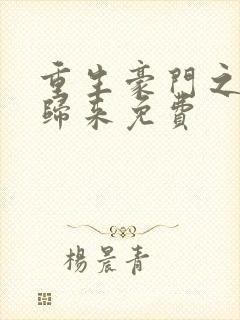 重生豪門之
歸來免費
楊晨青